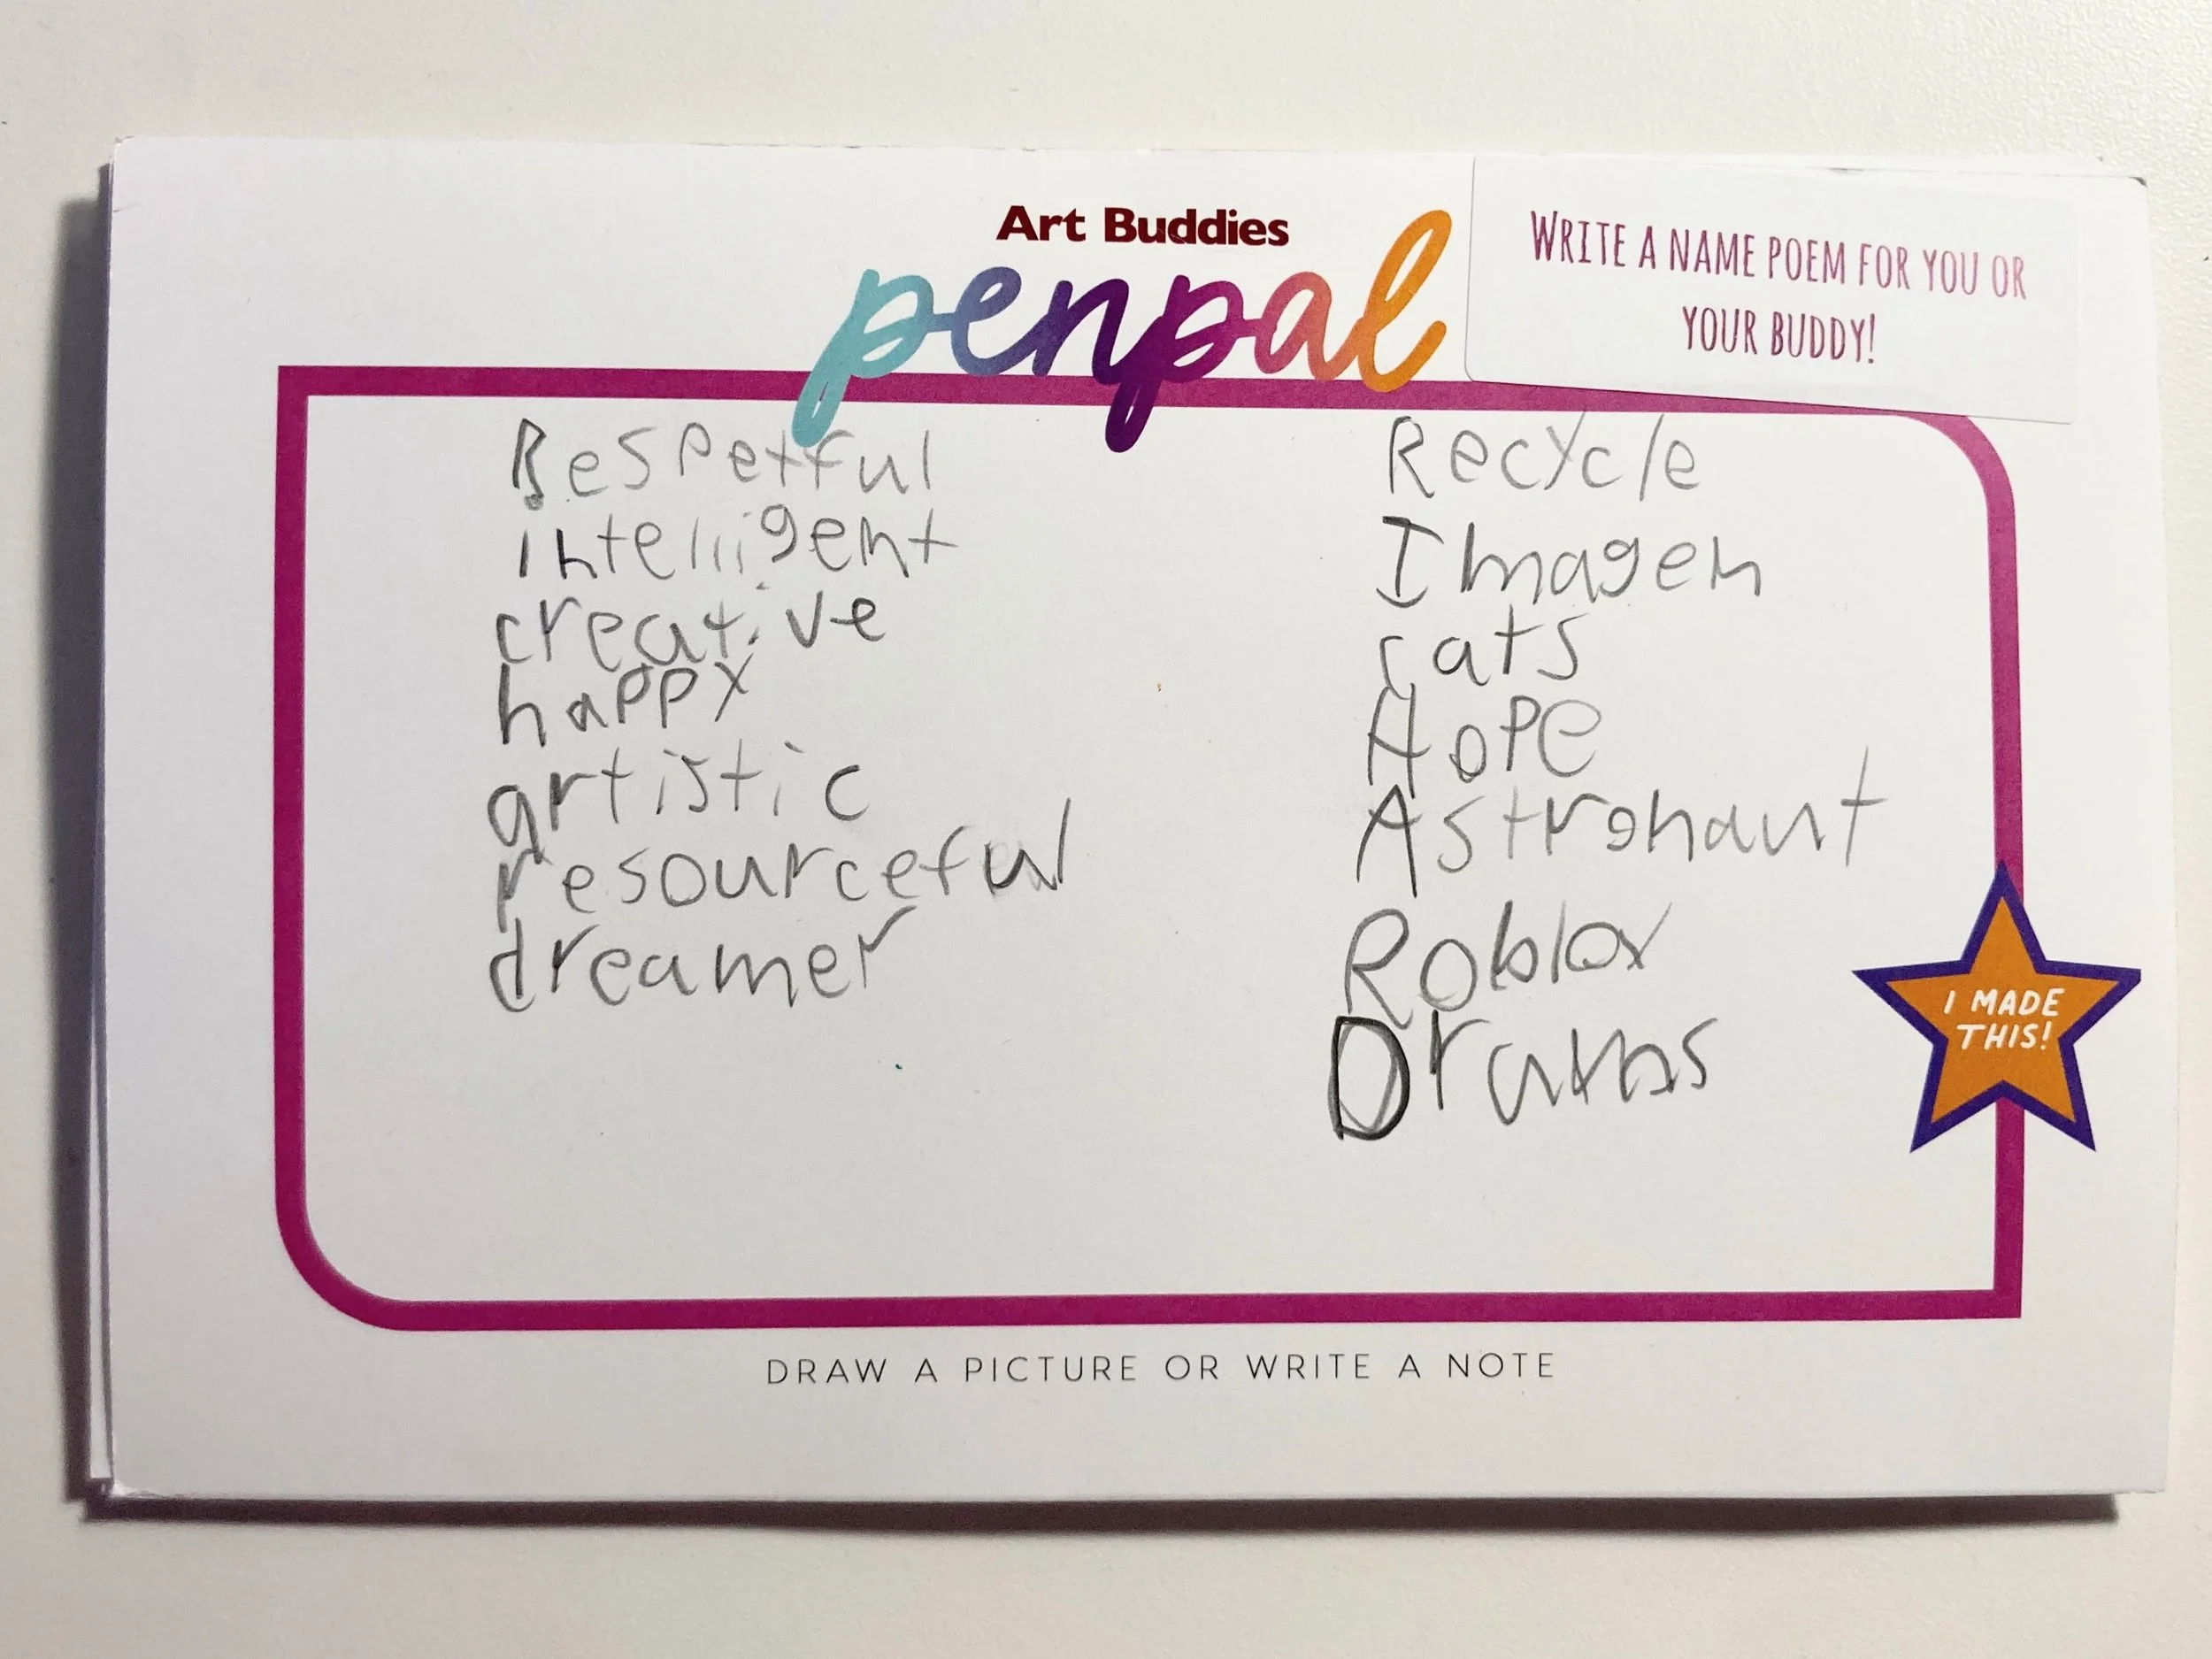 Art Buddies
penpal
WRITE A NAME POEM FOR YOU OR
YOUR BUDDY!
Respetful
intelligent
creative
happy
artistic
resourceful
dreamer
Recycle
Imagen
cats
Hope
Astronaut
Roblox
I MADE
THIS!
DRAW A PICTURE OR WRITE A NOTE